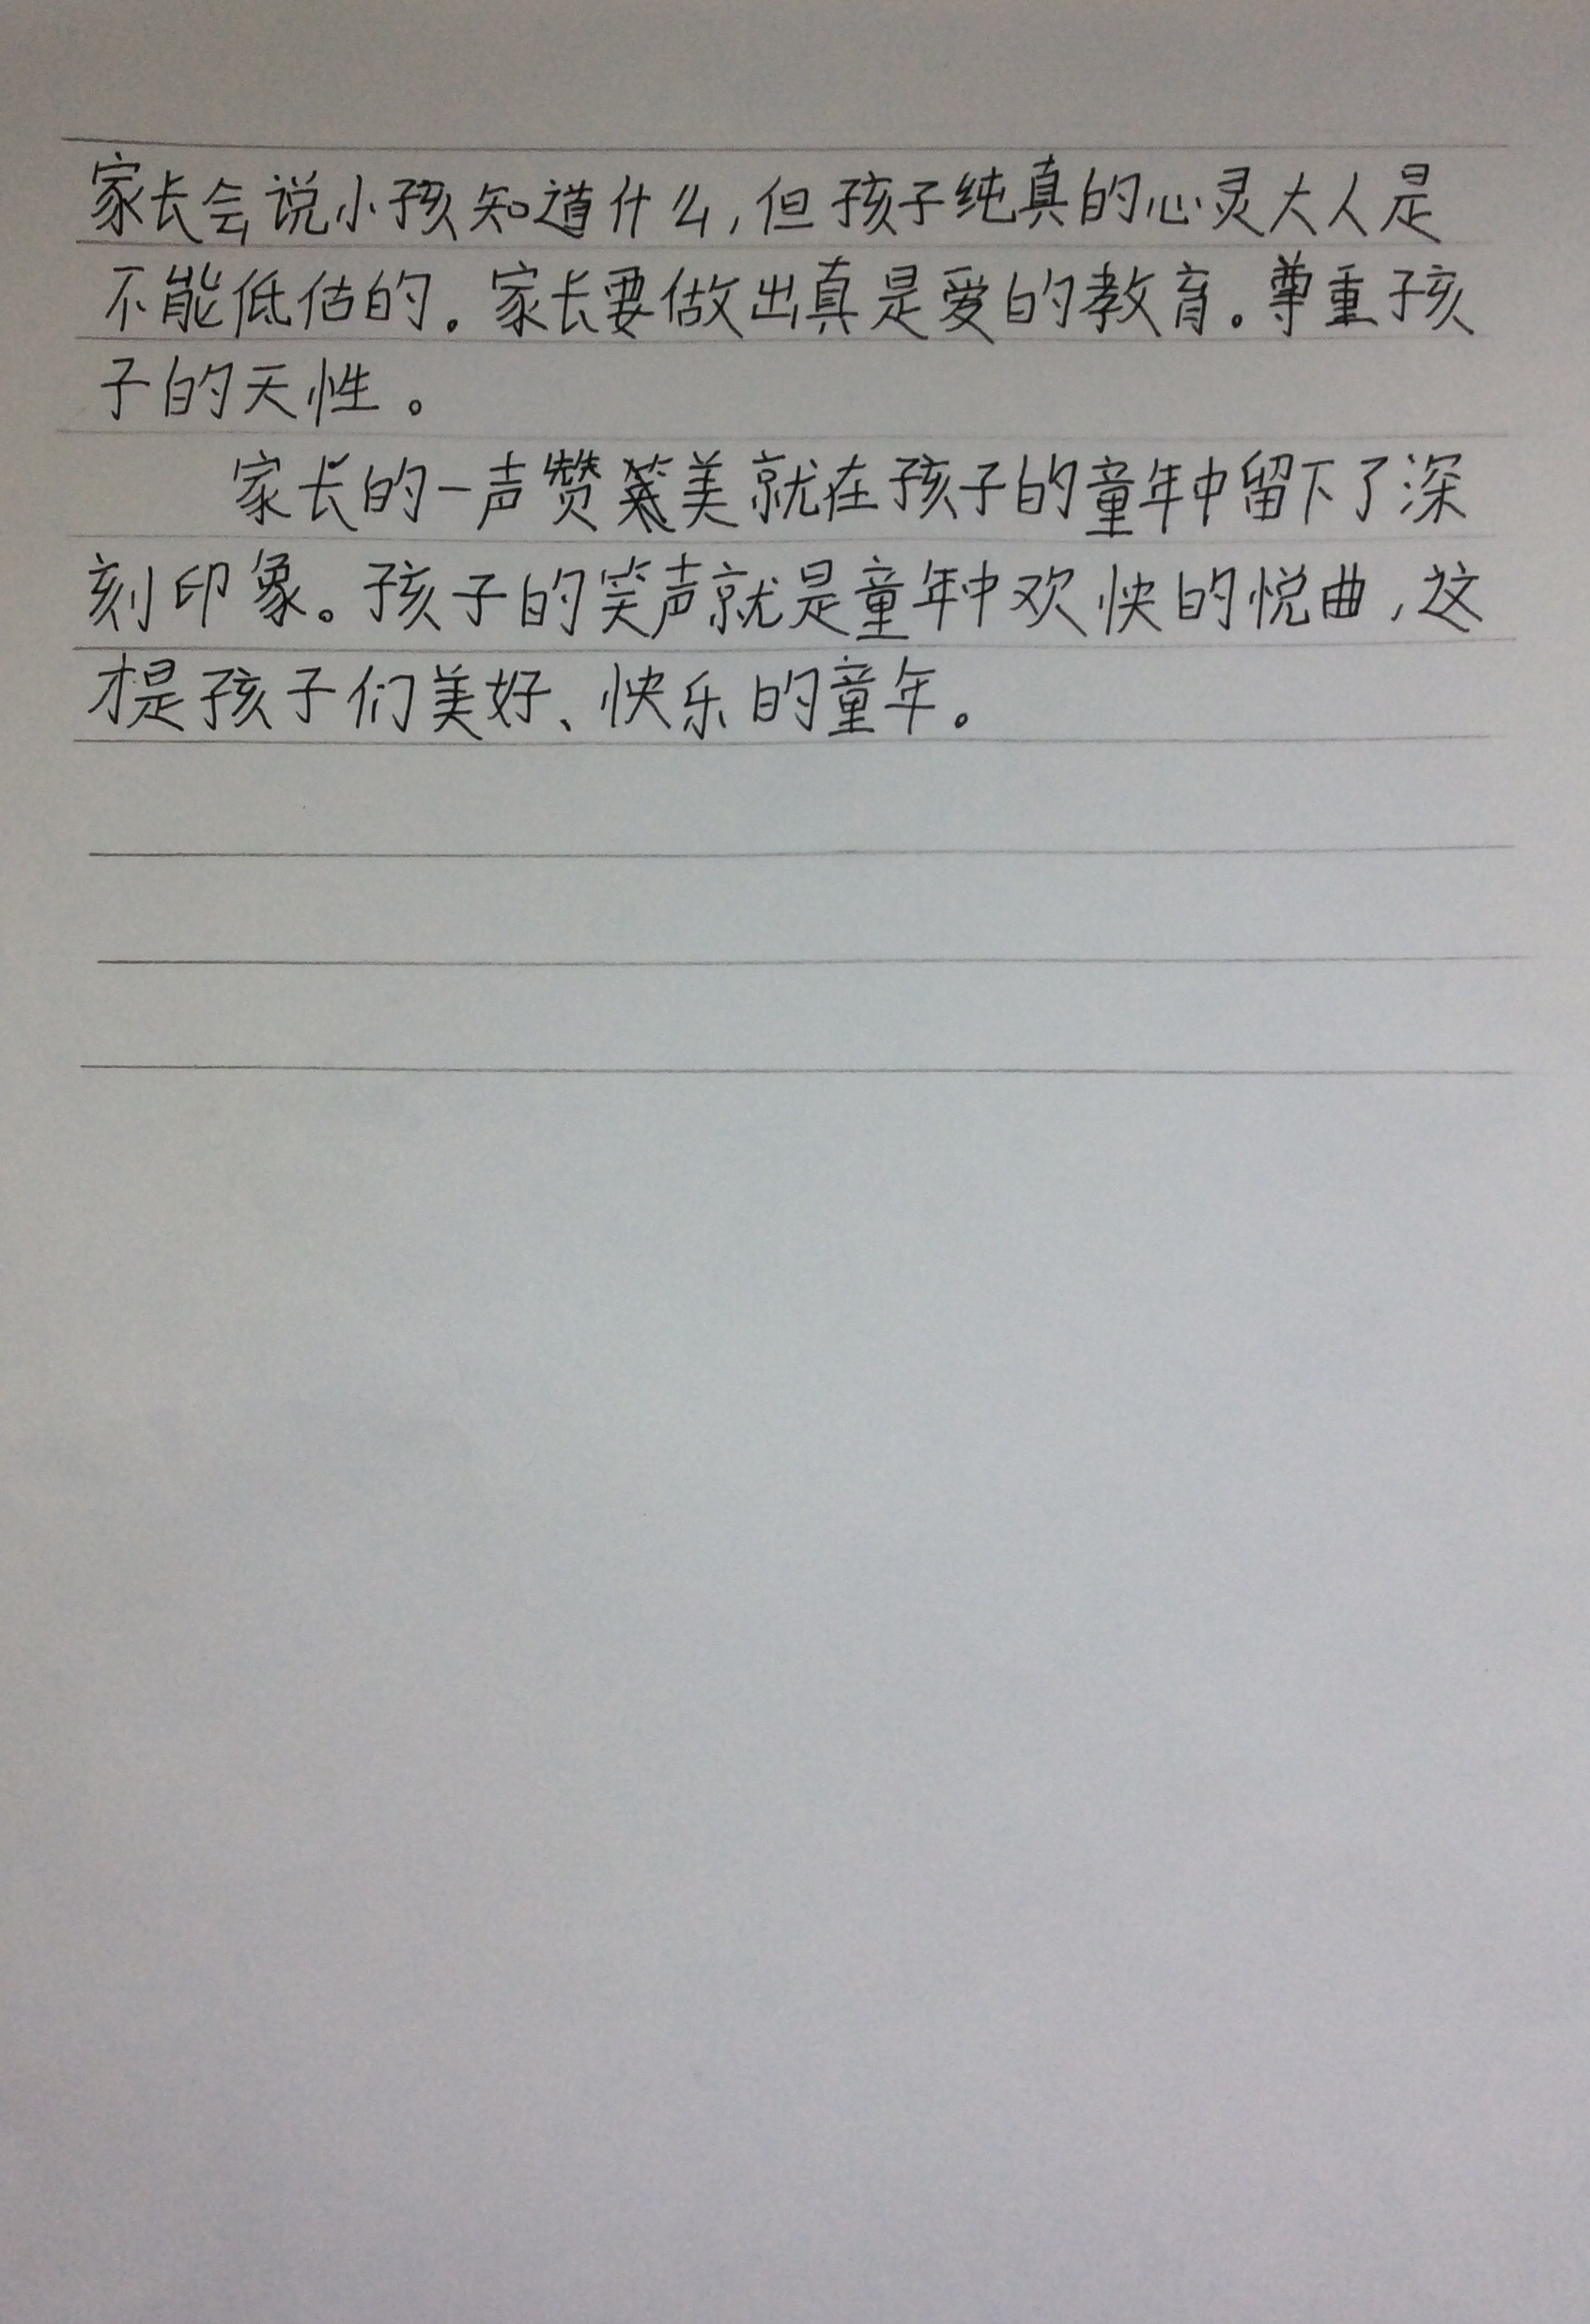 家长会说小孩知道什么,但孩子纯真的心灵大人是
不能低估的。家长要做出真是爱的教育。尊重孩
子的天性。
家长的一声赞美就在孩子的童年中留下了深
刻印象。孩子的笑声就是童年中欢快的悦曲,这
才是孩子们美好、快乐的童年。